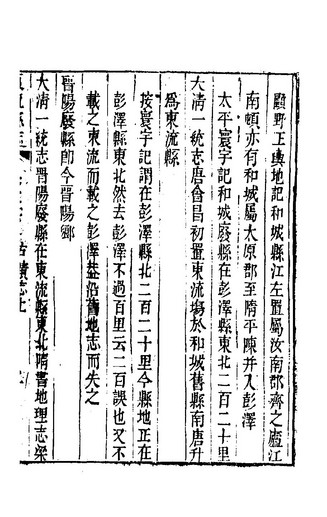 顧野王輿地記和城縣江左置屬汝南郡齊之廬江
南頓亦有和城屬太原郡至隋平陳并入彭澤
太平寰宇記和城廢縣在彭澤縣東北二百二十里
大清一統志唐會昌初置東流場於和城舊縣南唐升
爲東流縣
按寰宇記謂在彭澤縣北二百二十里今縣地正在
彭澤縣東北然去彭澤不過百里云二百誤也又不
載之東流而載之彭澤葢沿舊地志而失之
晉陽廢縣卽今晉陽鄉
大清一統志晉陽廢縣在東流縣東北隋書地理志梁